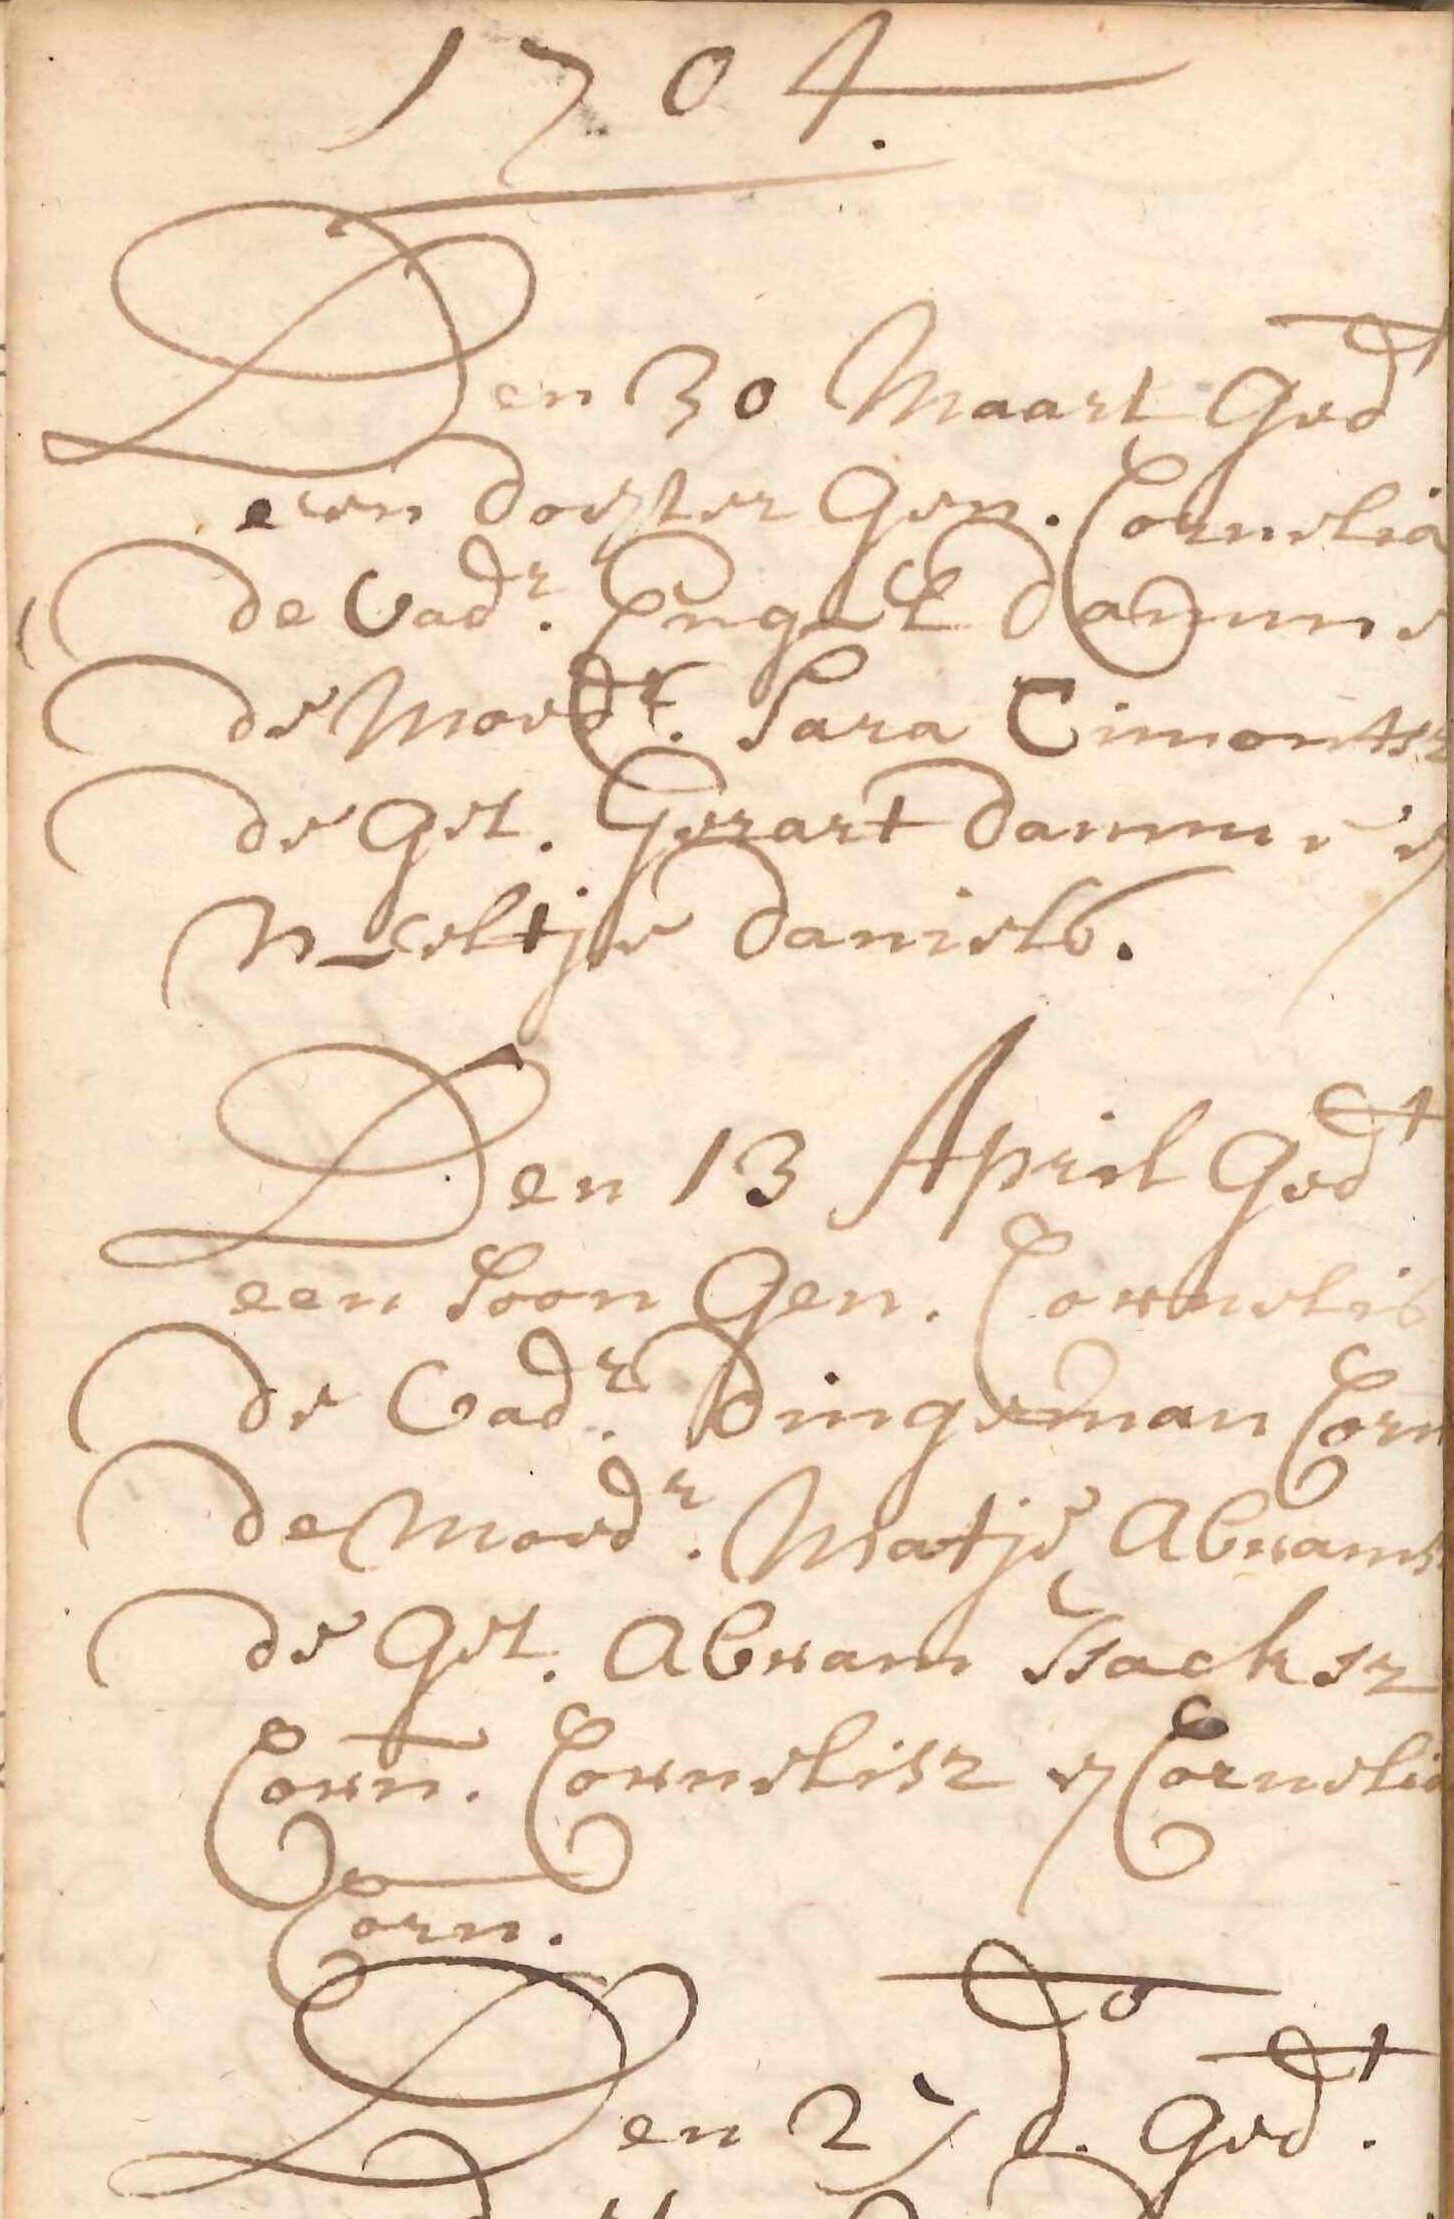 1704.
Den 30 Maart Ged^t
een dochter Gen. Cornelia
de Vad^r. Engel Damme
de Moed^r. Sara Timontsz
de Get. Gerart Damme en
Neeltje Daniels.
Den 13 April Ged^t
een Soon Gen. Cornelis
de Vad^r. Dingeman Corn
de Moed^r. Matje Abrams
de Get. Abram Isacksz
Corn. Cornelisz en Cornelia
Corn.
Den 27 d^o. Ged^t.